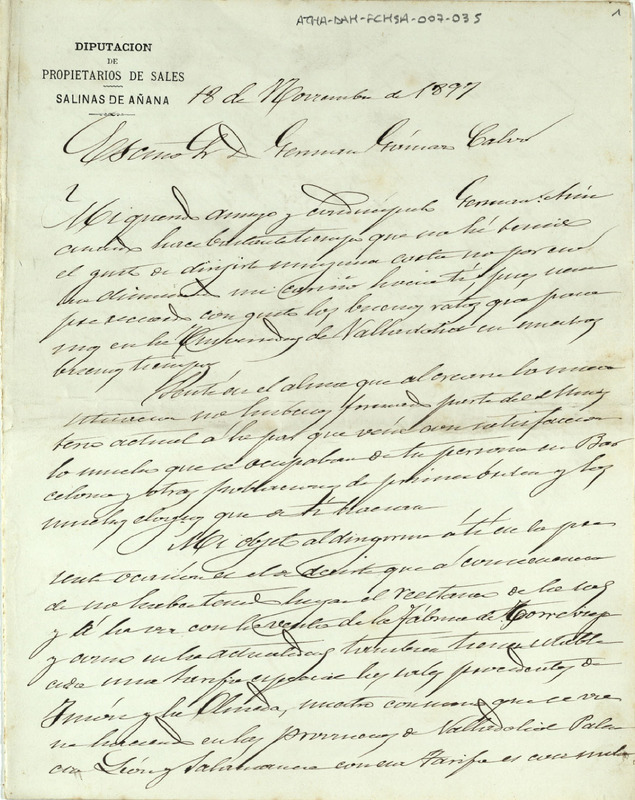 ATHA-DAH-FCHSA-007-035
1
DIPUTACION
DE
PROPIETARIOS DE SALES
SALINAS DE AÑANA
18 de Noviembre de 1897
Excmo Sr D German Gamazo Calvo
Mi querido amigo y condiscipulo German:
cuando hace bastante tiempo que no hé tenido
el gusto de dirijirte ninguna carta no por eso
ha disminuido mi cariño hacia tí, pues siem
pre recuerdo con gusto los buenos ratos que pasa
mos en la Universidad de Valladolid en nuestros
buenos tiempos
Sentí en el alma que al crearse la nueva
no hubieras formado parte del Minis
terio actual á la par que veia con satisfaccion
lo mucho que se ocupaban de tu persona en Bar
celona y otras poblaciones de primer orden y los
muchos elogios que de tí hacian
Mi objeto al dirigirme á tí en la pre
sente ocasion es el de decirte que á consecuencia
de no haber tenido lugar el de la sal
y á la vez con la venta de la Fábrica de Torrevieja
y como en la actualidad tambien tiene estable
cida una tarifa especial las sales procedentes de
Imón y la Olmeda, nuestro consumo que se ve
nia haciendo en las provincias de Valladolid Palen
cia León y Salamanca con esa Tarifa es con